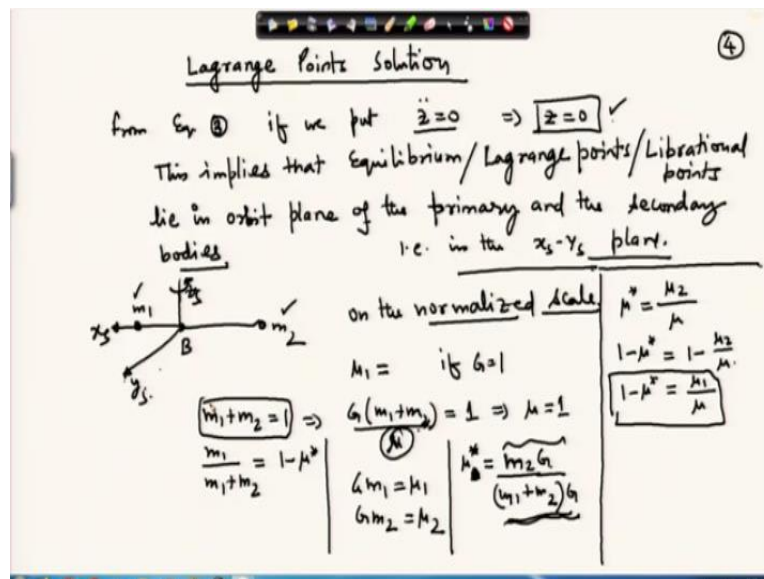 ④
Lagrange Points Solution
from Eq. ③ if we put z̈=0 ⇒ z=0 ✓
This implies that Equilibrium/Lagrange points/Librational points
lie in orbit plane of the primary and the secondary
bodies i.e. in the xₛ-yₛ plane.
m₁ ✓
xₛ
B
m₂ ✓
yₛ
on the normalized scale
μ₁ = if G=1
m₁+m₂=1 ⇒ G(m₁+m₂) = 1 ⇒ μ=1
μ
m₁/(m₁+m₂) = 1-μ*
Gm₁=μ₁
Gm₂=μ₂
μ* = m₂G/(m₁+m₂)G
μ* = μ₂/μ
1-μ* = 1- μ₂/μ
1-μ* = μ₁/μ